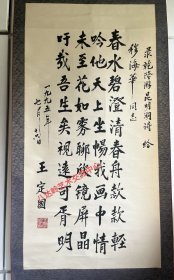 录乾隆游昆明湖诗 给
穆海华 同志
春水碧澄清春舟款款轻
吟他天上坐我画中情
未至花如雾聊欣镜屏晶
吁我吾生矣现远可胥明
一九九五年
七月 日
王定国